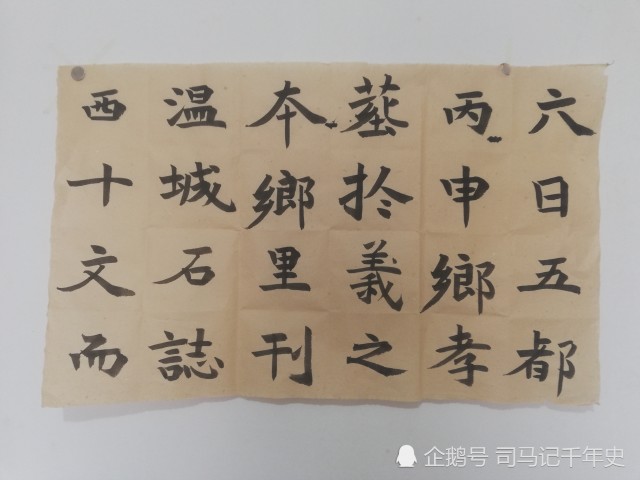 六日
丙申
塟於
本鄉
温城
西十
五都
鄉孝
義之
里刊
石誌
文而
企鹅号 司马记千年史